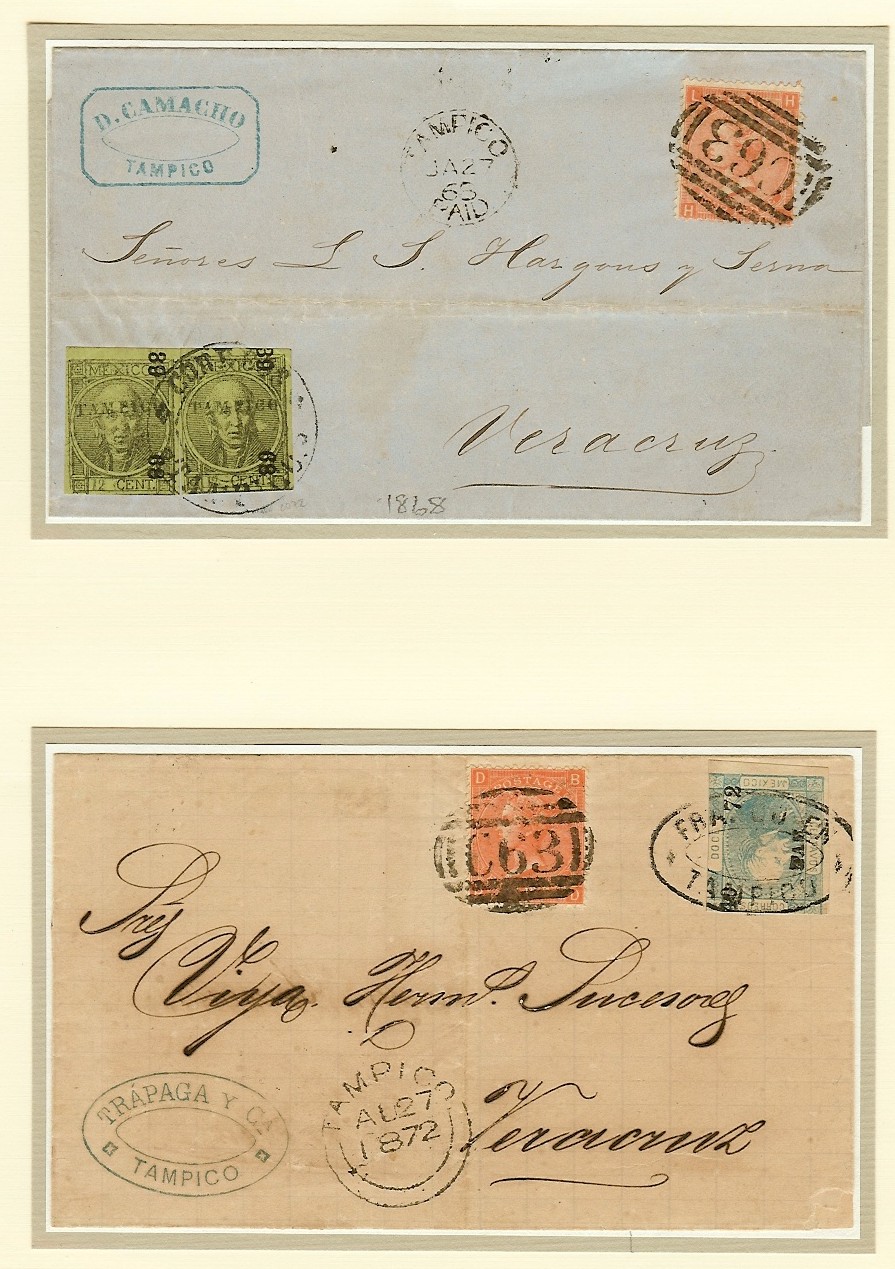 D. CAMACHO
TAMPICO
TAMPICO
JA27
PAID
L H
C63
H
Señores L S. Hargous y Serna
Veracruz
MEXICO
TAMPICO
12 CENT.
68
MEXICO
TAMPICO
CENT
68
CORREOS
1868
D POSTAGE B
C63
72
MEXICO
FRANCO EN
TAMPICO
Sres
Viya Herms. Sucesores
Veracruz
TAMPICO
AU27
1872
TRÁPAGA Y Cª
TAMPICO